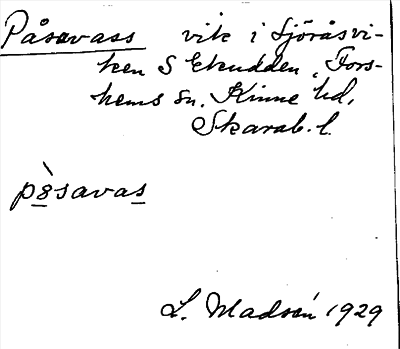 Påsavass vik i Sjöråsvi-
ken S Ekudden, Fors-
hems sn. Kinne hd,
Skarab. l.
pòsavas
L. Madsén 1929